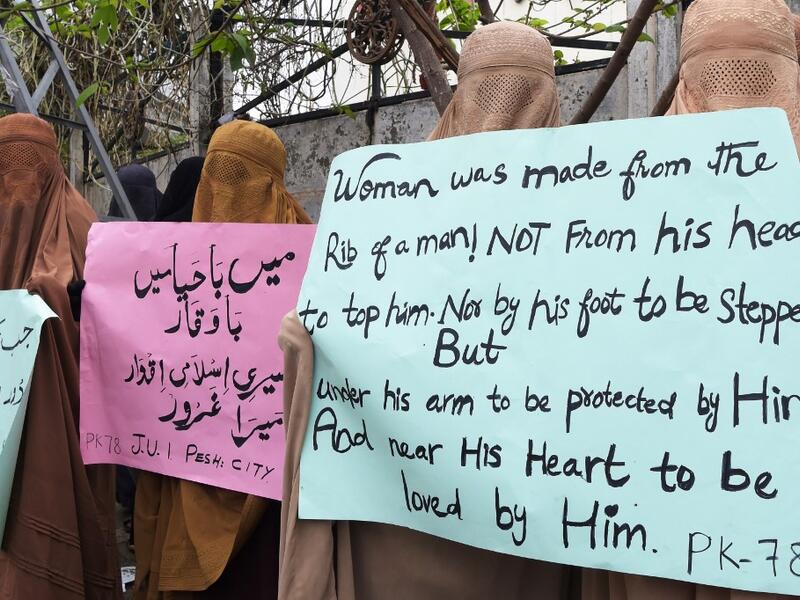 جب
میں باحیا میں
باوقار
میری اسلامی اقدار
میرا غرور
PK78 J.U.I PESH: CITY
Woman was made from the
Rib of a man! NOT From his head
to top him. Nor by his foot to be Steppe
But
under his arm to be protected by Him
And near His Heart to be
loved by Him.
PK-78